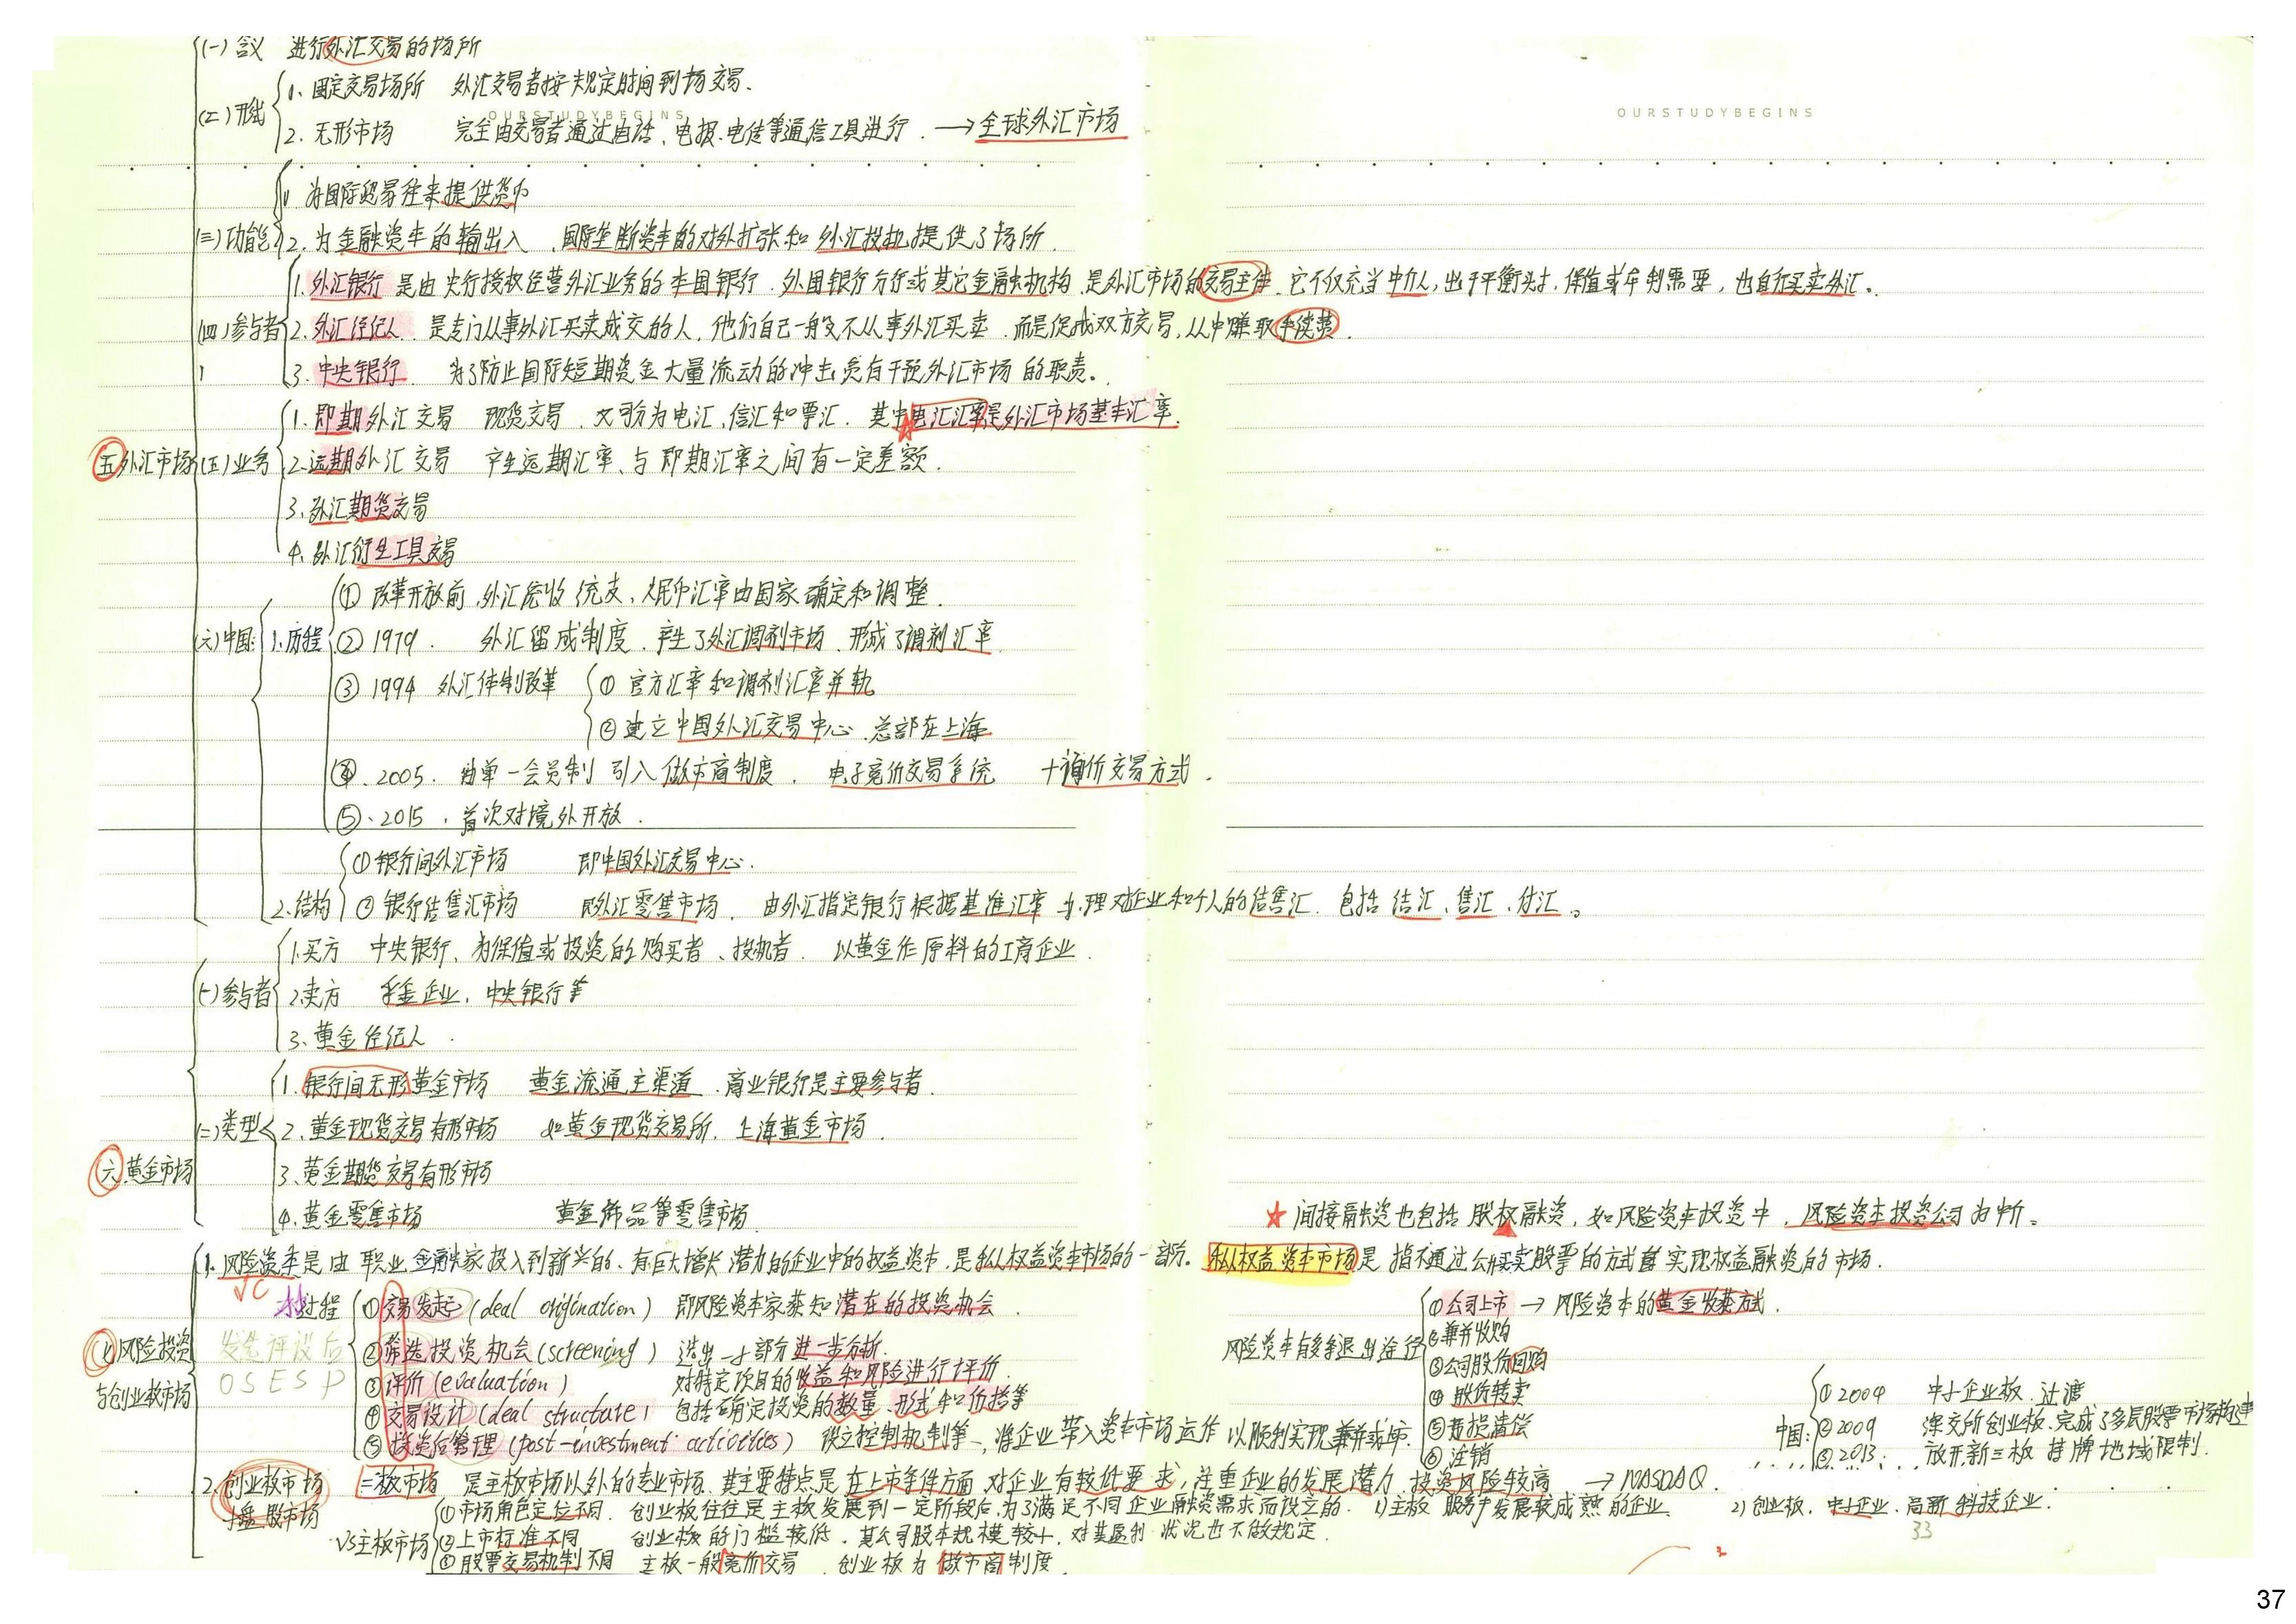 (一)含义 进行外汇交易的场所
OURSTUDYBEGINS
OURSTUDYBEGINS
(二)形式
1、固定交易场所 外汇交易者按规定时间到场交易、
2. 无形市场 完全由交易者通过电话、电报、电传等通信工具进行. →全球外汇市场
(三)功能
1 为国际贸易往来提供货币
2. 为金融资本的输出入、国际垄断资本的对外扩张和外汇投机提供了场所.
(四)参与者
1. 外汇银行 是由央行授权经营外汇业务的本国银行、外国银行分行或其它金融机构、是外汇市场的交易主体、它不仅充当中介人,出于平衡头寸、保值或牟利需要,也自行买卖外汇。
2. 外汇经纪人 是专门从事外汇买卖成交的人,他们自己一般不从事外汇买卖、而是促成双方交易,从中赚取手续费.
3. 中央银行 为了防止国际短期资金大量流动的冲击负有干预外汇市场的职责。
五 外汇市场
(五)业务
1. 即期外汇交易 现货交易、又可分为电汇、信汇和票汇. 其中电汇汇率是外汇市场基本汇率.
2. 远期外汇交易 产生远期汇率、与即期汇率之间有一定差额.
3. 外汇期货交易
4. 外汇衍生工具交易
(六)中国:
1. 历程
① 改革开放前、外汇统收统支、人民币汇率由国家确定和调整.
② 1979. 外汇留成制度、产生了外汇调剂市场、形成了调剂汇率
③ 1994 外汇体制改革
① 官方汇率和调剂汇率并轨
② 建立中国外汇交易中心、总部在上海
④. 2005. 由单一会员制引入做市商制度. 电子竞价交易系统 +询价交易方式.
⑤、2015、首次对境外开放.
2. 结构
① 银行间外汇市场 即中国外汇交易中心.
② 银行结售汇市场 即外汇零售市场. 由外汇指定银行根据基准汇率办理对企业和个人的结售汇. 包括结汇、售汇、付汇。
六 黄金市场
(一)参与者
1. 买方 中央银行、为保值或投资的购买者、投机者. 以黄金作原料的工商企业.
2. 卖方 采金企业、中央银行等
3. 黄金经纪人.
(二)类型
1. 银行间无形黄金市场 黄金流通主渠道、商业银行是主要参与者.
2、黄金现货交易有形市场 如黄金现货交易所、上海黄金市场.
3、黄金期货交易有形市场
4. 黄金零售市场 黄金饰品等零售市场.
★ 间接融资也包括股权融资,如风险资本投资中,风险资本投资公司为中介。
七 风险投资与创业板市场
1. 风险资本是由职业金融家投入到新兴的、有巨大增长潜力的企业中的权益资本,是私人权益资本市场的一部分。私人权益资本市场是指不通过公开买卖股票的方式实现权益融资的市场.
VC
过程
① 交易发起 (deal origination) 即风险资本家获知潜在的投资机会.
② 筛选投资机会 (screening) 选出一部分进一步分析.
③ 评价 (evaluation) 对特定项目的收益和风险进行评价
④ 交易设计 (deal structure) 包括确定投资的数量、形式和价格等
⑤ 投资后管理 (post-investment activities) 设立控制机制等,将企业带入资本市场运作以顺利实现兼并或上市.
发选评设后
O S E S P
风险资本有多条退出途径
① 公司上市 → 风险资本的黄金收获方式.
② 兼并收购
③ 公司股份回购
④ 股份转卖
⑤ 亏损清偿
⑥ 注销
中国:
① 2004 中小企业板、过渡
② 2009 深交所创业板、完成了多层股票市场构建
③ 2013 放开新三板挂牌地域限制.
2. 创业板市场 二板市场 是主板市场以外的专业市场、其主要特点是在上市条件方面对企业有较低要求,注重企业的发展潜力、投资风险较高 → NASDAQ.
小盘股市场
VS主板市场
① 市场角色定位不同. 创业板往往是主板发展到一定阶段后,为了满足不同企业融资需求而设立的. 1)主板 服务于发展较成熟的企业. 2)创业板、中小企业、高新科技企业.
② 上市标准不同 创业板的门槛较低. 其公司股本规模较小,对其盈利状况也不做规定.
③ 股票交易机制不同 主板一般竞价交易. 创业板为做市商制度.
33
37